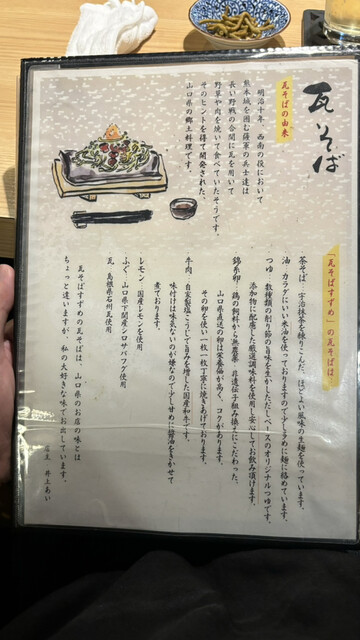 瓦そば
瓦そばの由来
明治十年、西南の役において
熊本城を囲む薩軍の兵士達は
長い野戦の合間に瓦を用いて
野草や肉を焼いて食べていたそうです。
そのヒントを得て開発された、
山口県の郷土料理です。
「瓦そばすずめ」の瓦そばは、
茶そば…宇治抹茶を練りこんだ、ほどよい風味の生麺を使っています。
油…カラダにいい米油を使っておりますので少し多めに麺に絡めています。
つゆ…数種類の削り節の旨味を生かしただしベースのオリジナルつゆです。
添加物に配慮した厳選調味料を使用し安心してお飲み頂けます。
錦糸卵…鶏の飼料から無農薬、非遺伝子組み換えにこだわった、
山口県直送の卵は栄養価が高く、コクがあります。
その卵を使い一枚一枚丁寧に焼きあげております。
牛肉…自家製塩こうじで旨みを増した国産和牛です。
味付けは味気ないのが嫌なので少し甘めに醤油をきかせて
煮ております。
レモン…国産レモンを使用
ふぐ…山口県下関産シロサバフグ使用
瓦…島根県石州瓦使用
瓦そばすずめの瓦そばは、山口県のお店の味とは
ちょっと違いますが、私の大好きな味でお出ししています。
店主 井上あい